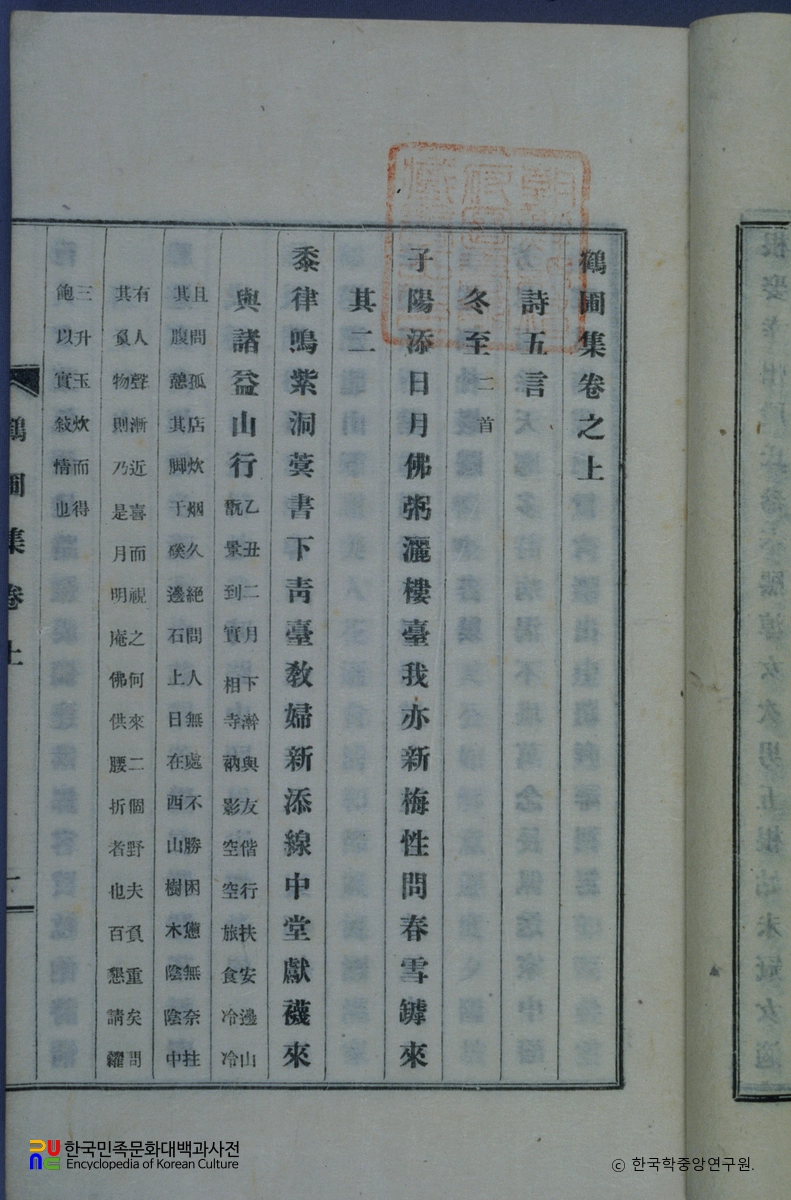 鶴圃集卷之上
詩五言
冬至 二首
子陽添日月佛粥灑樓臺我亦新梅性問春雪罅來
其二
黍律鳴紫洞蓂書下靑臺敎婦新添線中堂獻襪來
與諸益山行 乙丑二月下澣與友偕行扶安邊山
翫景到實相寺衲影空空旅食冷冷
且問孤店炊烟久絕問人無處不勝困憊無奈拄
其腹憩其脚于磎邊石上日在西山樹木陰陰中
有人聲漸近喜而視之何來二個野夫負重矣問
其負物則乃是月明庵佛供腰折者也百懇請糶
三升玉炊而得
飽以實敍情也
鶴圃集卷上 一
한국민족문화대백과사전
Encyclopedia of Korean Culture
© 한국학중앙연구원.